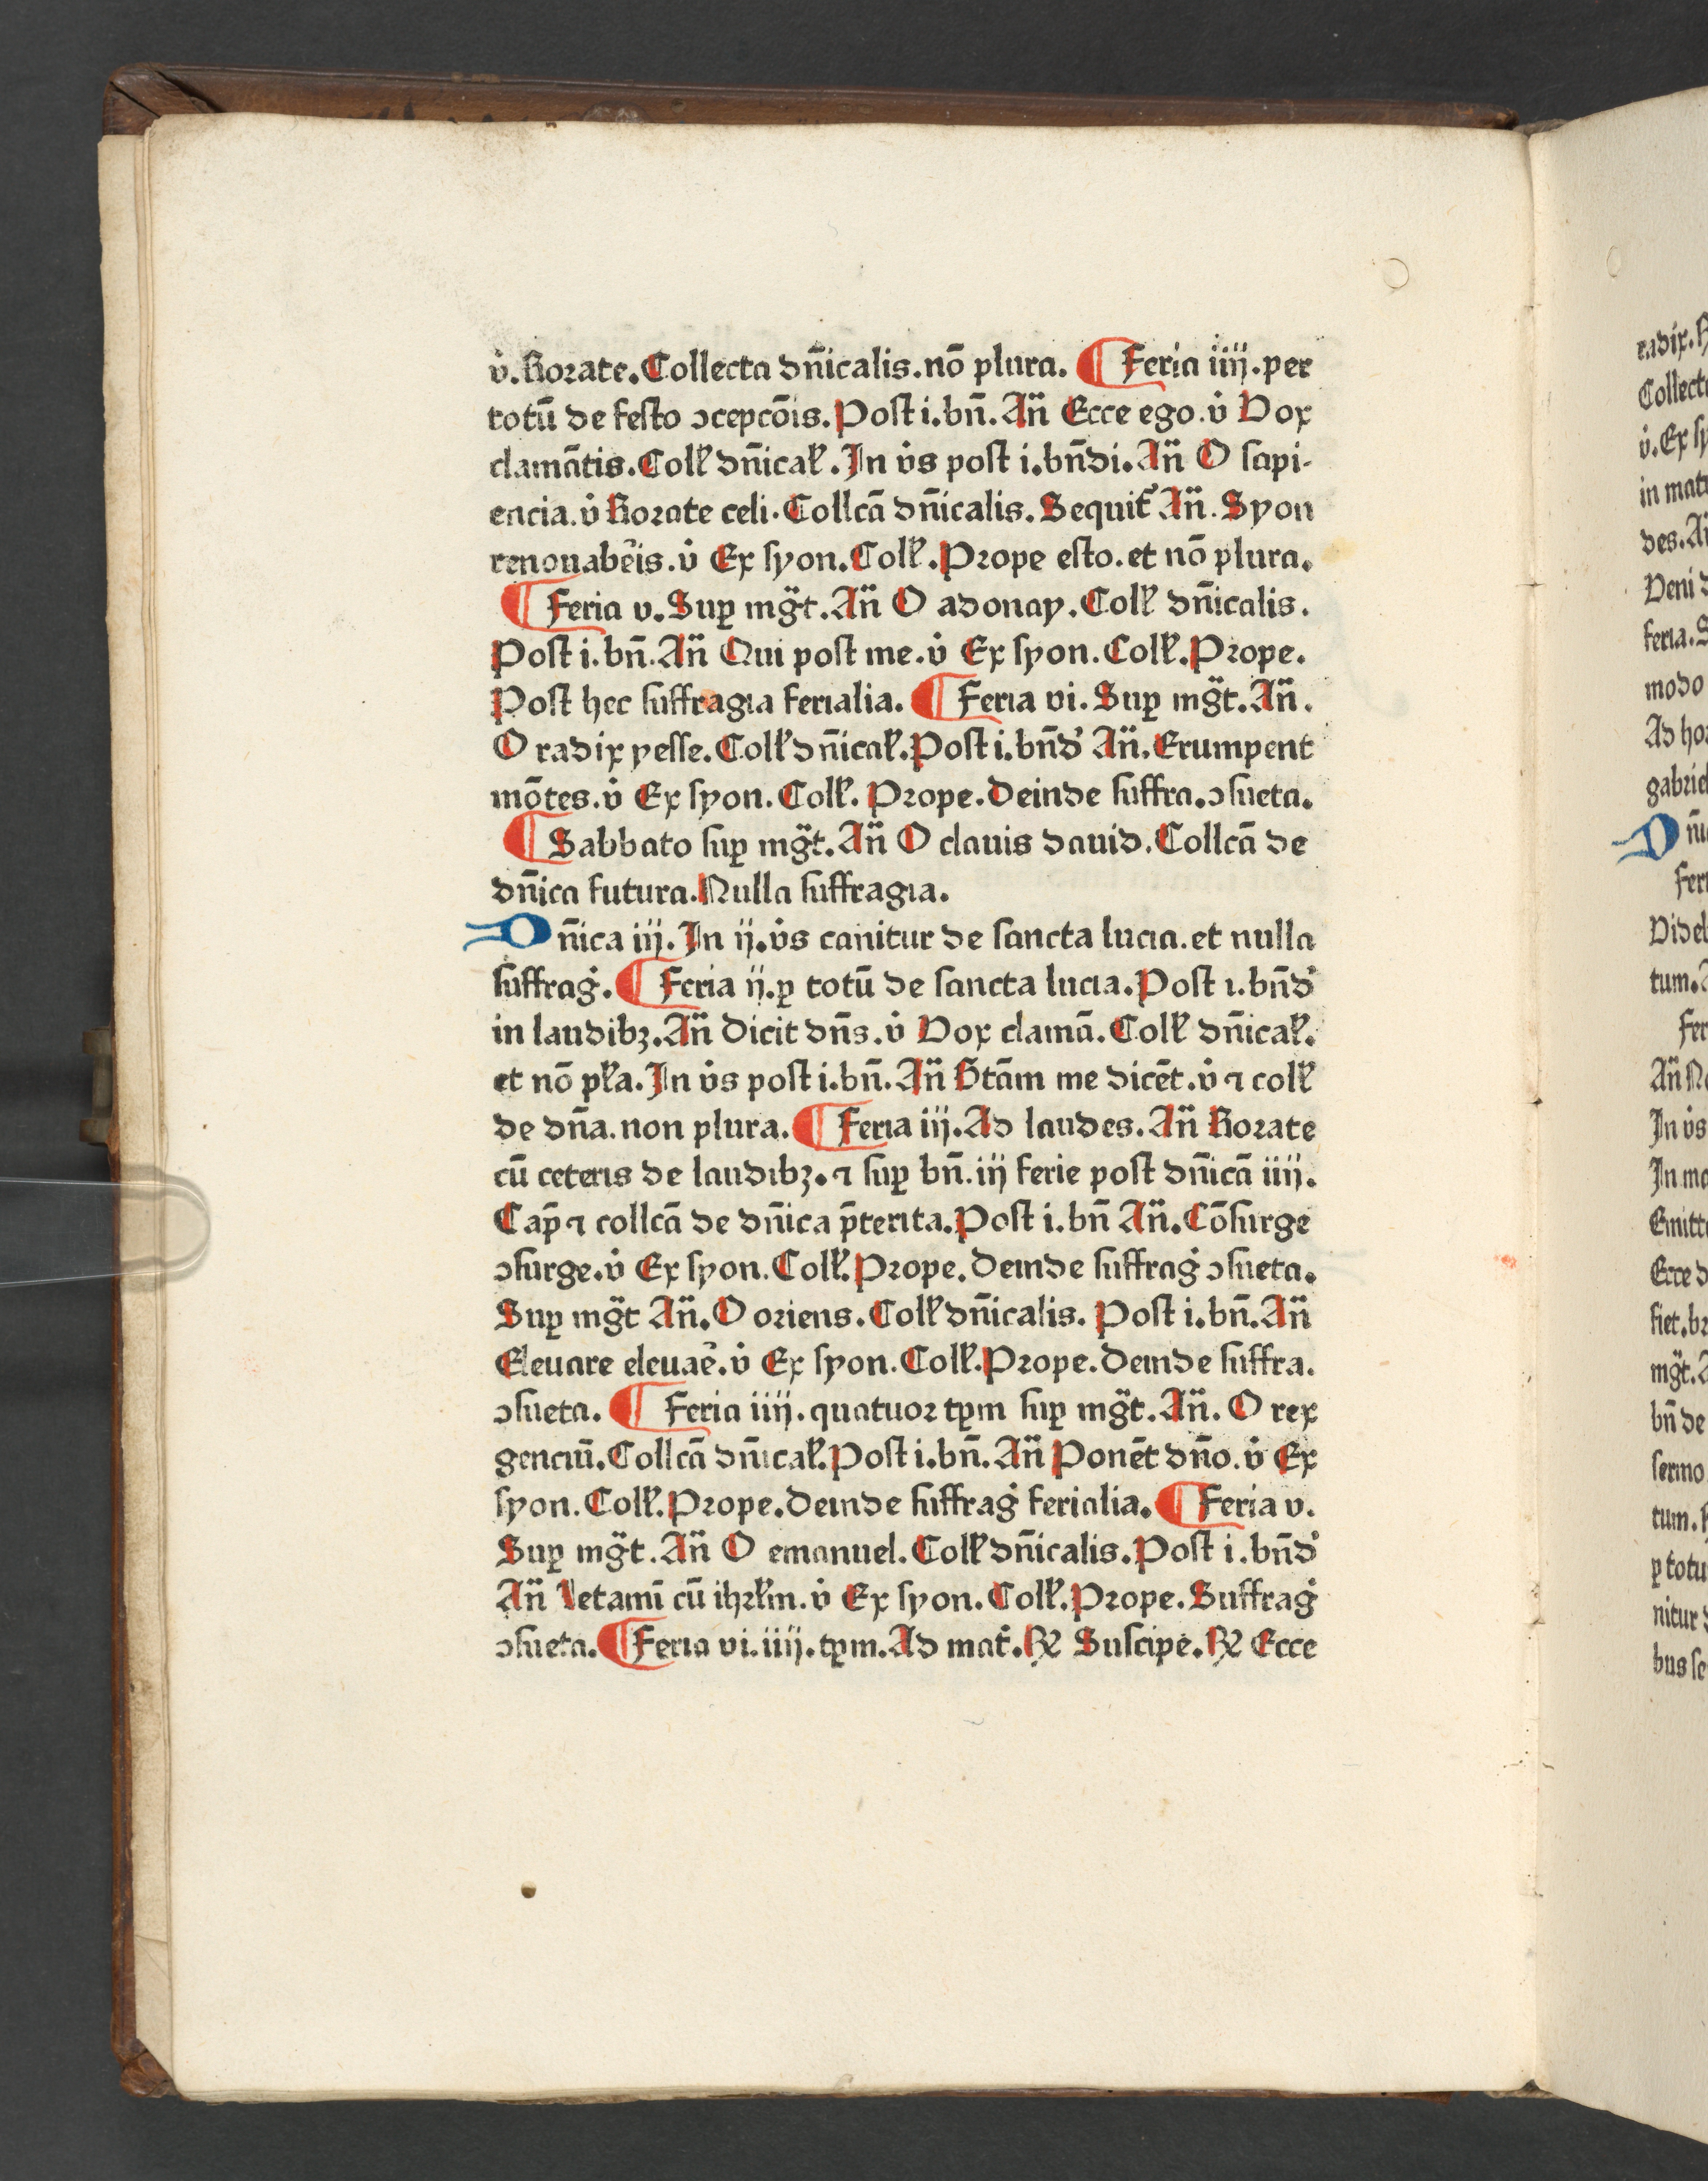 v̇. Rorate. Collecta dn̄icalis. nō plura. ¶ Feria iiij. per
totū de festo ↄcepcōis. Post i. bn̄. An̄ Ecce ego. v̇ Vox
clamātis. Coll' dn̄ical'. In v̇s post i. bn̄di. An̄ O sapi-
encia. v̇ Rorate celi. Collcā dn̄icalis. Sequit᷑ An̄. Syon
renouabēis. v̇ Ex syon. Coll'. Prope esto. et nō plura.
¶ Feria v. Suꝑ mg̈t. An̄ O adonay. Coll' dn̄icalis.
Post i. bn̄. An̄ Qui post me. v̇ Ex syon. Coll'. Prope.
Post hec suffragia ferialia. ¶ Feria vi. Suꝑ mg̈t. An̄.
O radix yesse. Coll' dn̄ical'. Post i. bn̄d' An̄. Erumpent
mōtes. v̇ Ex syon. Coll'. Prope. Deinde suffra. ↄsueta.
¶ Sabbato suꝑ mg̈t. An̄ O clauis dauid. Collcā de
dn̄ica futura. Nulla suffragia.
Dn̄ica iij. In ij. v̇s canitur de sancta lucia. et nulla
suffraġ. ¶ Feria ij. ꝑ totū de sancta lucia. Post i. bn̄d'
in laudibꝫ. An̄ Dicit dn̄s. v̇ Vox clamā. Coll' dn̄ical'.
et nō pl'a. In v̇s post i. bn̄. An̄ Btām me dicēt. v̇ ⁊ coll'
de dn̄a. non plura. ¶ Feria iij. Ad laudes. An̄ Rorate
cū ceteris de laudibꝫ. ⁊ suꝑ bn̄. iij ferie post dn̄icā iiij.
Cap̄ ⁊ collcā de dn̄ica p̄terita. Post i. bn̄ An̄. Cōsurge
ↄsurge. v̇ Ex syon. Coll'. Prope. Deinde suffraġ ↄsueta.
Suꝑ mg̈t An̄. O oriens. Coll' dn̄icalis. Post i. bn̄. An̄
Eleuare eleuaē. v̇ Ex syon. Coll'. Prope. Deinde suffra.
ↄsueta. ¶ Feria iiij. quatuor tꝑm suꝑ mg̈t. An̄. O rex
genciū. Collcā dn̄ical'. Post i. bn̄. An̄ Ponēt dn̄o. v̇ Ex
syon. Coll'. Prope. Deinde suffraġ ferialia. ¶ Feria v.
Suꝑ mg̈t. An̄ O emanuel. Coll' dn̄icalis. Post i. bn̄d'
An̄ Letamī cū ihrl'm. v̇ Ex syon. Coll'. Prope. Suffraġ
ↄsueta. ¶ Feria vi. iiij. tꝑm. Ad mat᷑. ℟ Suscipe. ℟ Ecce
radix.
Collect
v̇. Ex sy
in mat
des. A
Veni
feria. S
modo
Ad ho
gabriel
Dn̄i
Fer
Videl
tum. A
Fer
An̄ N
In v̇s
In ma
Emitt
Ecce d
fiet. br
mg̈t. A
bn̄ de
sermo
tum.
ꝑ totu
nitur
bus se